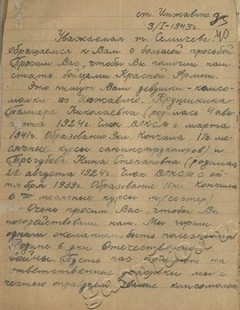 ст. Инжавино
3/I-1943г.
Уважаемая т. Селичева
обращаемся к Вам с большой просьбой
Просим Вас, чтобы Вы помогли нам
стать бойцами Красной Армии.
Это пишут Вам девушки-комсо-
молки из Инжавино. Крупушкина
Тамара Николаевна (родилась 7 янв.
1924г. Член ВЛКСМ с марта
1941г. Образование 9кл. Кончила
месячные курсы саниструкторов) и
Нина Степановна (родилась
22 августа 1924г. Член ВЛКСМ с
1939г. Образование 10кл. Кончила
месячные курсы м/сестер)
Очень просим Вас, чтобы Вы
походатайствовали нам. Мы горим
одним желанием быть полезными
Родине в дни Отечественной
войны. Пусть нас пошлют на
ответственные участки мы с
честью оправдаем звание комсомолок